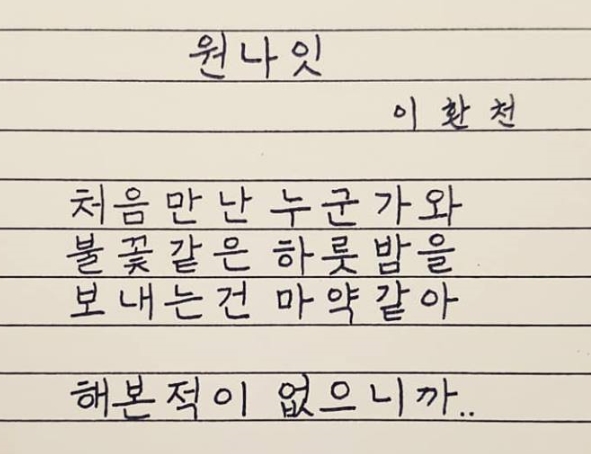 원나잇
이환천
처음만난 누군가와
불꽃같은 하룻밤을
보내는건 마약같아
해본적이 없으니까..